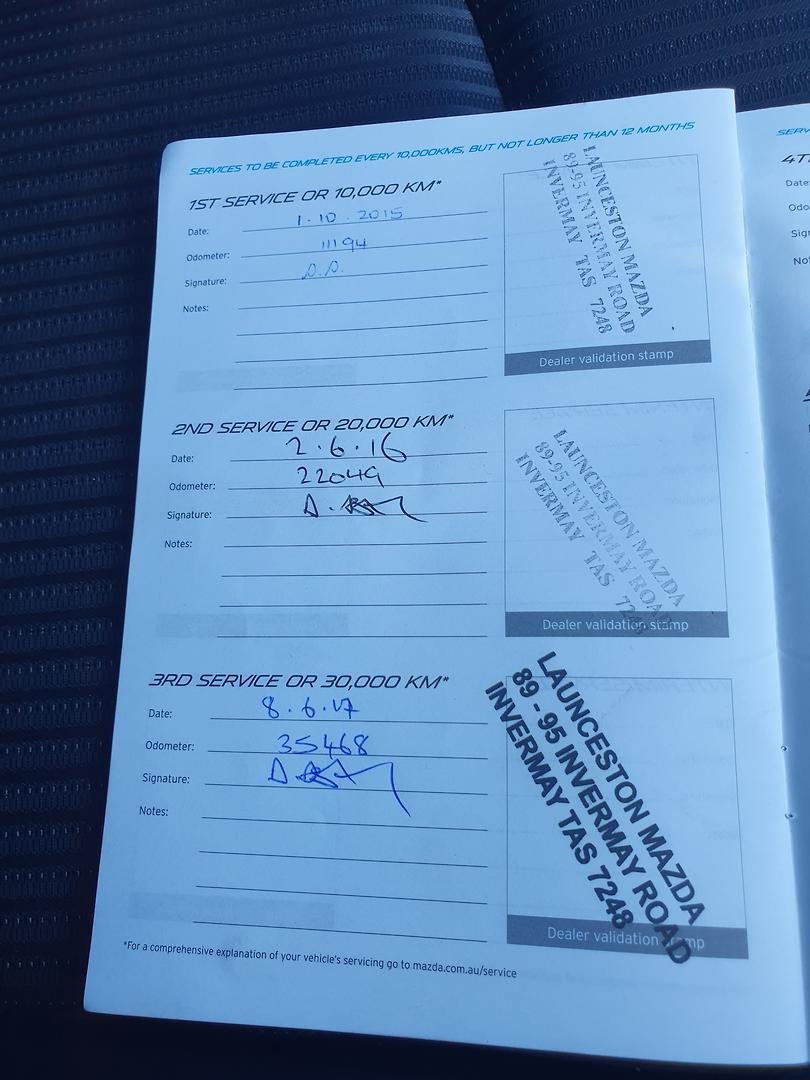 SERVICES TO BE COMPLETED EVERY 10,000KMS, BUT NOT LONGER THAN 12 MONTHS
1ST SERVICE OR 10,000 KM*
Date: 1.10.2015
Odometer: 11194
Signature: D.D.
Notes:
LAUNCESTON MAZDA
89-95 INVERMAY ROAD
INVERMAY TAS 7248
Dealer validation stamp
2ND SERVICE OR 20,000 KM*
Date: 2.6.16
Odometer: 22049
Signature:
Notes:
LAUNCESTON MAZDA
89-95 INVERMAY ROAD
INVERMAY TAS 7248
Dealer validation stamp
3RD SERVICE OR 30,000 KM*
Date: 8.6.17
Odometer: 35468
Signature:
Notes:
LAUNCESTON MAZDA
89 - 95 INVERMAY ROAD
INVERMAY TAS 7248
Dealer validation stamp
*For a comprehensive explanation of your vehicle's servicing go to mazda.com.au/service